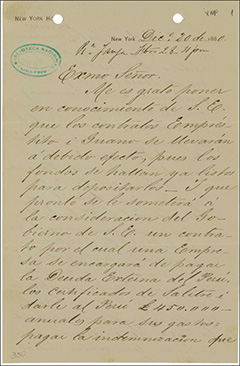 New York
New York Dec. 20 de 1880.
Exmo Señor.
Me es grato poner
en conocimiento de S. E.
que los contratos Emprés-
tito i Guano se llevarán
a debido efecto, pues los
fondos se hallan ya listos
para depositarlos — i que
pronto se le someterá a
la consideracion del Go-
bierno de S. E. un contra-
to por el cual una Empre-
sa se encargará de pagar
la Deuda Externa del Perú,
los certificados de Salitre i
darle al Perú £ 450,000—
anuales para sus gastos:
pagar la indemnizacion que